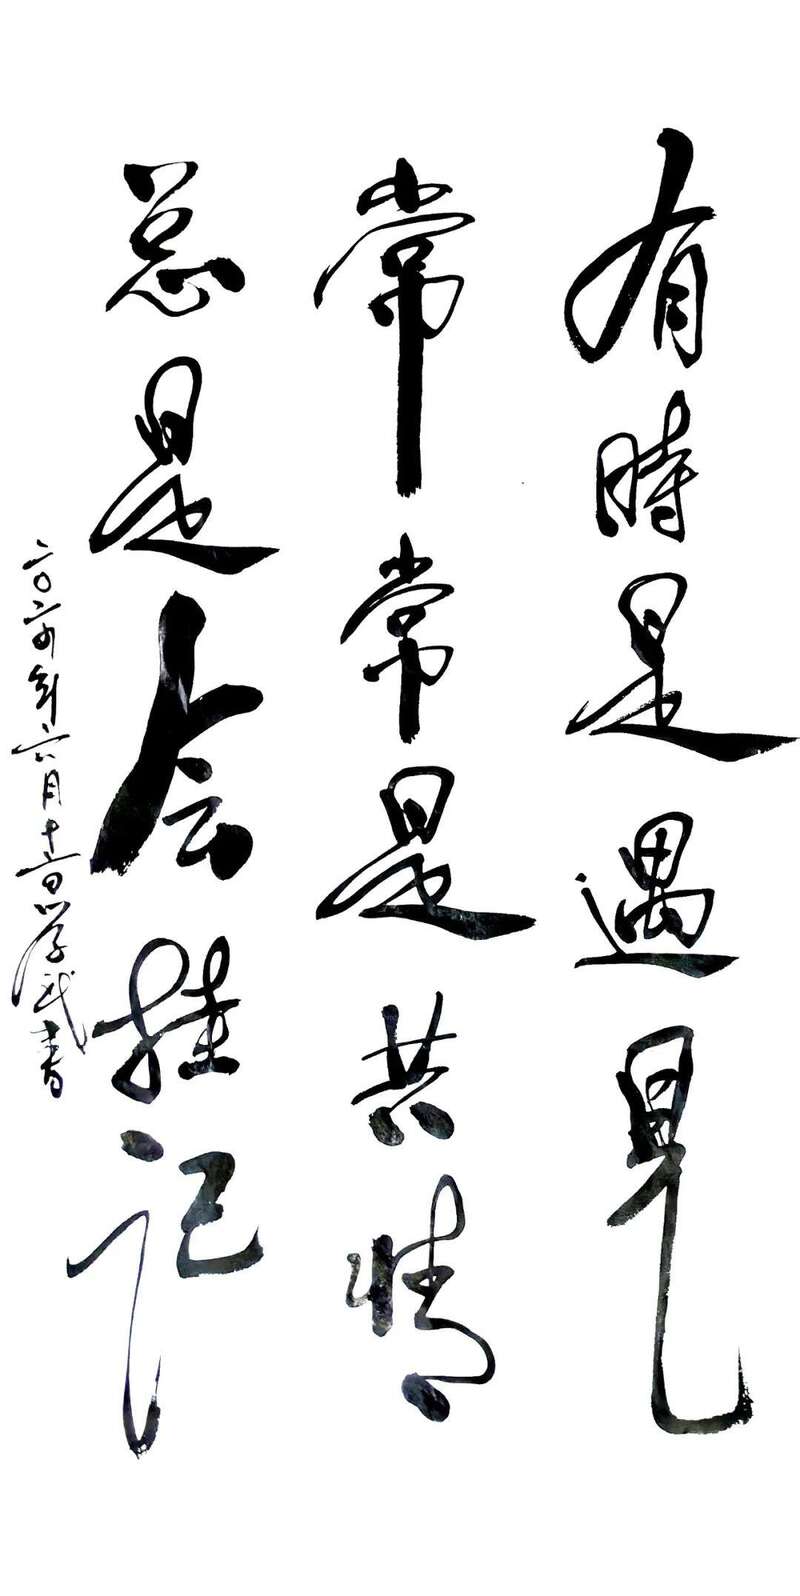 有時是遇見
常常是共情
总是会挂记
二〇二四年六月十六日 学武书